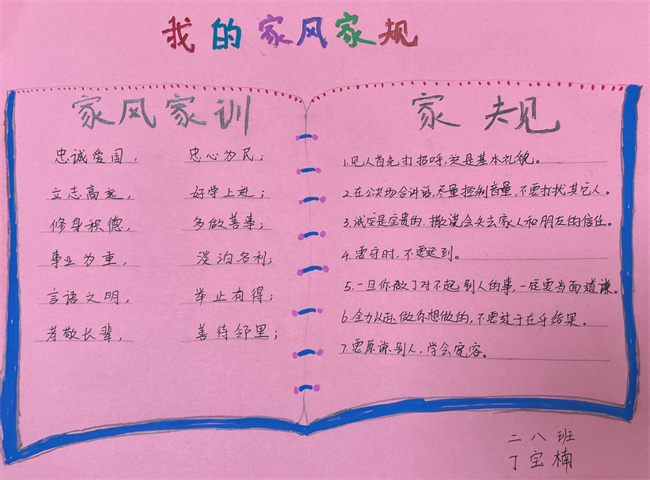 我的家风家规
家风家训
忠诚爱国， 忠心为民；
立志高远， 好学上进；
修身积德， 多做善事；
事业为重， 淡泊名利；
言语文明， 举止有得；
孝敬长辈， 善待邻里；
家规
1.见人首先打招呼，这是基本礼貌。
2.在公共场合讲话，尽量控制音量，不要打扰其它人。
3.诚实是宝贵的，撒谎会失去家人和朋友的信任。
4.要守时，不要迟到。
5.一旦你做了对不起别人的事，一定要当面道歉。
6.全力以赴做你想做的，不要过于在乎结果。
7.要原谅别人，学会宽容。
二八班
丁宝楠